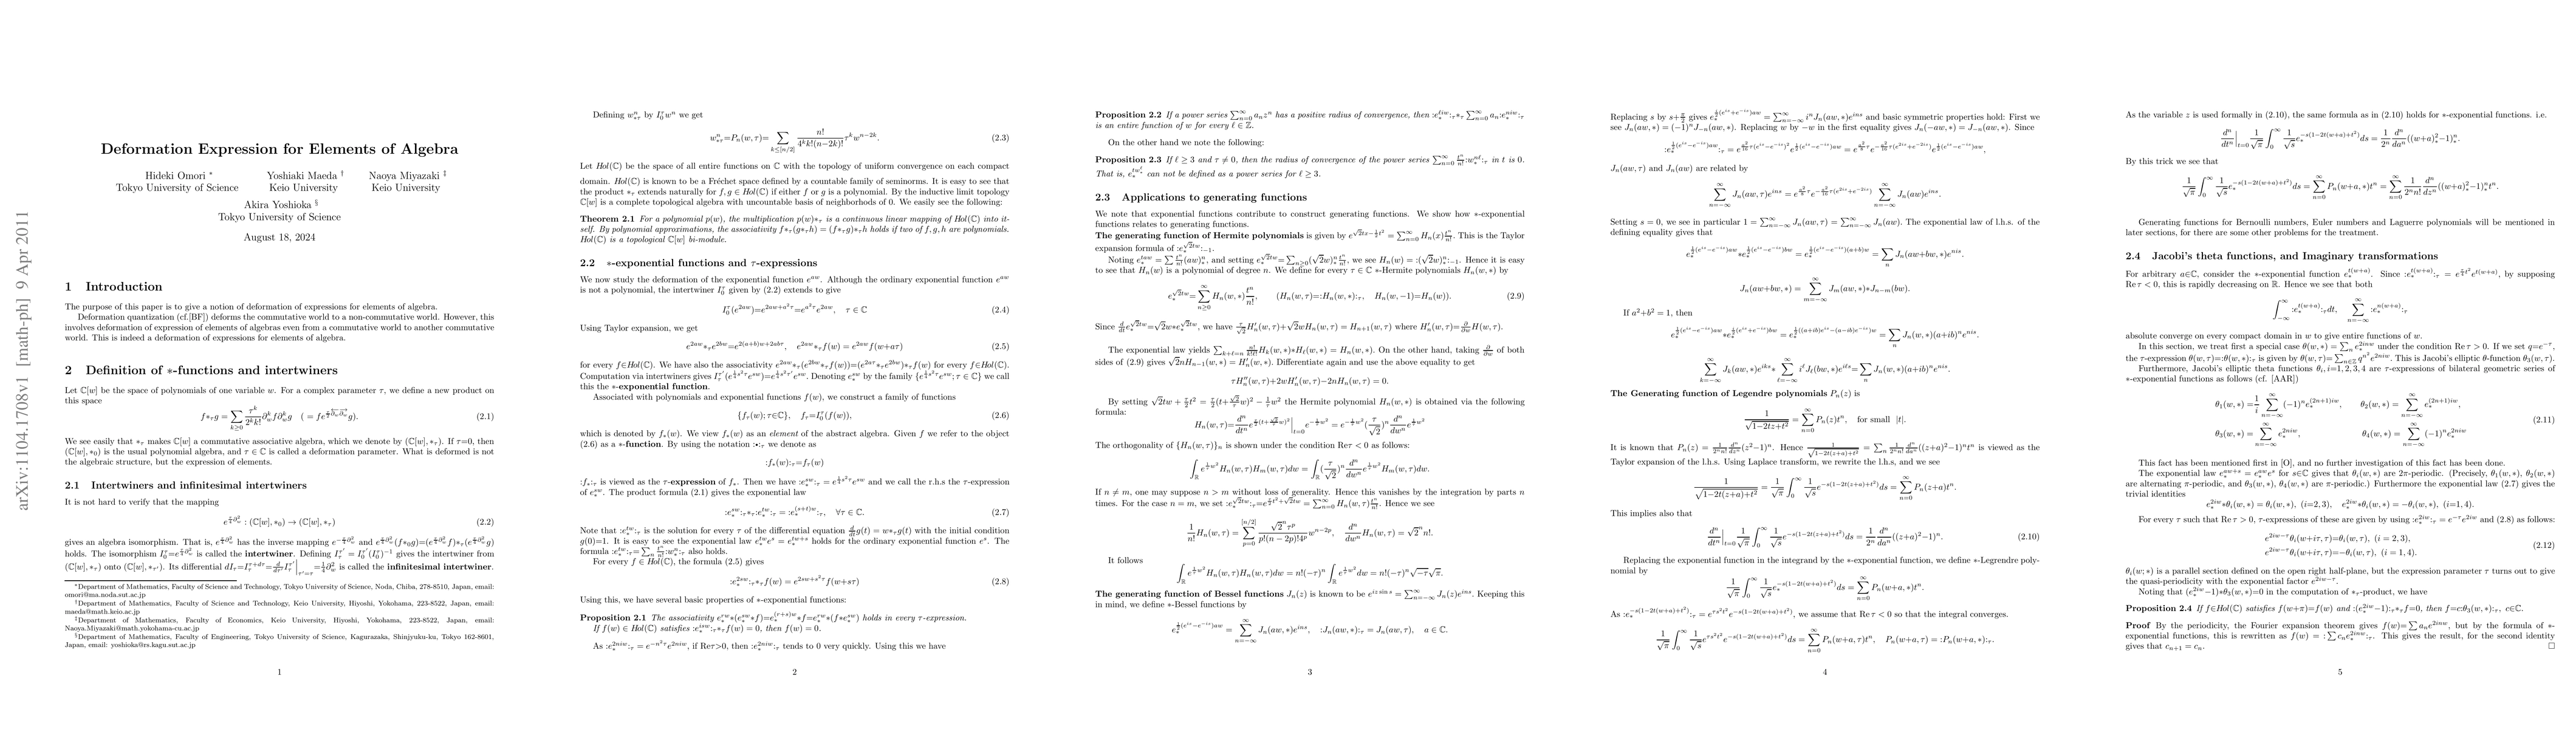 arXiv:1104.1708v1 [math-ph] 9 Apr 2011
Deformation Expression for Elements of Algebra
Hideki Omori * Yoshiaki Maeda † Naoya Miyazaki ‡
Tokyo University of Science Keio University Keio University
Akira Yoshioka §
Tokyo University of Science
August 18, 2024
1 Introduction
The purpose of this paper is to give a notion of deformation of expressions for elements of algebra.
Deformation quantization (cf.[BF]) deforms the commutative world to a non-commutative world. However, this
involves deformation of expression of elements of algebras even from a commutative world to another commutative
world. This is indeed a deformation of expressions for elements of algebra.
2 Definition of ∗-functions and intertwiners
Let ℂ[w] be the space of polynomials of one variable w. For a complex parameter τ, we define a new product on
this space
f∗_τ g = ∑_{k≥0} \frac{τ^k}{2^k k!} ∂_w^k f ∂_w^k g ( = f e^{\frac{τ}{2}\overleftarrow{∂_w}\overrightarrow{∂_w}} g). (2.1)
We see easily that ∗_τ makes ℂ[w] a commutative associative algebra, which we denote by (ℂ[w], ∗_τ). If τ=0, then
(ℂ[w], ∗_0) is the usual polynomial algebra, and τ ∈ ℂ is called a deformation parameter. What is deformed is not
the algebraic structure, but the expression of elements.
2.1 Intertwiners and infinitesimal intertwiners
It is not hard to verify that the mapping
e^{\frac{τ}{4}∂_w^2} : (ℂ[w], ∗_0) → (ℂ[w], ∗_τ) (2.2)
gives an algebra isomorphism. That is, e^{\frac{τ}{4}∂_w^2} has the inverse mapping e^{-\frac{τ}{4}∂_w^2} and e^{\frac{τ}{4}∂_w^2}(f∗_0 g)=(e^{\frac{τ}{4}∂_w^2}f)∗_τ(e^{\frac{τ}{4}∂_w^2}g)
holds. The isomorphism I_0^τ=e^{\frac{τ}{4}∂_w^2} is called the intertwiner. Defining I_τ^{τ'} = I_0^{τ'}(I_0^τ)^{-1} gives the intertwiner from
(ℂ[w], ∗_τ) onto (ℂ[w], ∗_{τ'}). Its differential dI_τ=I_τ^{τ+dτ}=\frac{d}{dτ'}I_τ^{τ'}|_{τ'=τ}=\frac{1}{4}∂_w^2 is called the infinitesimal intertwiner.
*Department of Mathematics, Faculty of Science and Technology, Tokyo University of Science, Noda, Chiba, 278-8510, Japan, email:
omori@ma.noda.sut.ac.jp
†Department of Mathematics, Faculty of Science and Technology, Keio University, Hiyoshi, Yokohama, 223-8522, Japan, email:
maeda@math.keio.ac.jp
‡Department of Mathematics, Faculty of Economics, Keio University, Hiyoshi, Yokohama, 223-8522, Japan, email:
Naoya.Miyazaki@math.yokohama-cu.ac.jp
§Department of Mathematics, Faculty of Engineering, Tokyo University of Science, Kagurazaka, Shinjyuku-ku, Tokyo 162-8601,
Japan, email: yoshioka@rs.kagu.sut.ac.jp
1
Defining w_{∗τ}^n by I_0^τ w^n we get
w_{∗τ}^n=P_n(w, τ)= ∑_{k≤[n/2]} \frac{n!}{4^k k!(n-2k)!} τ^k w^{n-2k}. (2.3)
Let Hol(ℂ) be the space of all entire functions on ℂ with the topology of uniform convergence on each compact
domain. Hol(ℂ) is known to be a Fréchet space defined by a countable family of seminorms. It is easy to see that
the product ∗_τ extends naturally for f, g ∈ Hol(ℂ) if either f or g is a polynomial. By the inductive limit topology
ℂ[w] is a complete topological algebra with uncountable basis of neighborhoods of 0. We easily see the following:
Theorem 2.1 For a polynomial p(w), the multiplication p(w)∗_τ is a continuous linear mapping of Hol(ℂ) into it-
self. By polynomial approximations, the associativity f∗_τ(g∗_τ h) = (f∗_τ g)∗_τ h holds if two of f, g, h are polynomials.
Hol(ℂ) is a topological ℂ[w] bi-module.
2.2 ∗-exponential functions and τ-expressions
We now study the deformation of the exponential function e^{aw}. Although the ordinary exponential function e^{aw}
is not a polynomial, the intertwiner I_0^τ given by (2.2) extends to give
I_0^τ(e^{2aw})=e^{2aw+a^2τ}=e^{a^2τ}e^{2aw}, τ ∈ ℂ (2.4)
Using Taylor expansion, we get
e^{2aw}∗_τ e^{2bw}=e^{2(a+b)w+2abτ}, e^{2aw}∗_τ f(w) = e^{2aw}f(w+aτ) (2.5)
for every f∈Hol(ℂ). We have also the associativity e^{2aw}∗_τ(e^{2bw}∗_τ f(w))=(e^{2aτ}∗_τ e^{2bw})∗_τ f(w) for every f∈Hol(ℂ).
Computation via intertwiners gives I_τ^{τ'}(e^{\frac{1}{4}s^2τ}e^{sw})=e^{\frac{1}{4}s^2τ'}e^{sw}. Denoting e_∗^{sw} by the family {e^{\frac{1}{4}s^2τ}e^{sw}; τ ∈ ℂ} we call
this the ∗-exponential function.
Associated with polynomials and exponential functions f(w), we construct a family of functions
{f_τ(w); τ∈ℂ}, f_τ=I_0^τ(f(w)), (2.6)
which is denoted by f_∗(w). We view f_∗(w) as an element of the abstract algebra. Given f we refer to the object
(2.6) as a ∗-function. By using the notation :•:_τ we denote as
:f_∗(w):_τ=f_τ(w)
:f_∗:_τ is viewed as the τ-expression of f_∗. Then we have :e_∗^{sw}:_τ = e^{\frac{1}{4}s^2τ}e^{sw} and we call the r.h.s the τ-expression
of e_∗^{sw}. The product formula (2.1) gives the exponential law
:e_∗^{sw}:_τ∗_τ:e_∗^{tw}:_τ = :e_∗^{(s+t)w}:_τ, ∀τ ∈ ℂ. (2.7)
Note that :e_∗^{tw}:_τ is the solution for every τ of the differential equation \frac{d}{dt}g(t) = w∗_τ g(t) with the initial condition
g(0)=1. It is easy to see the exponential law e_∗^{tw}e^s = e_∗^{tw+s} holds for the ordinary exponential function e^s. The
formula :e_∗^{tw}:_τ=∑_n \frac{t^n}{n!}:w_∗^n:_τ also holds.
For every f ∈ Hol(ℂ), the formula (2.5) gives
:e_∗^{2sw}:_τ∗_τ f(w) = e^{2sw+s^2τ}f(w+sτ) (2.8)
Using this, we have several basic properties of ∗-exponential functions:
Proposition 2.1 The associativity e_∗^{rw}∗(e_∗^{sw}∗f)=e_∗^{(r+s)w}∗f=e_∗^{rw}∗(f∗e_∗^{sw}) holds in every τ-expression.
If f(w) ∈ Hol(ℂ) satisfies :e_∗^{isw}:_τ∗_τ f(w) = 0, then f(w) = 0.
As :e_∗^{2niw}:_τ = e^{-n^2τ}e^{2niw}, if Reτ>0, then :e_∗^{2niw}:_τ tends to 0 very quickly. Using this we have
2
Proposition 2.2 If a power series ∑_{n=0}^∞ a_n z^n has a positive radius of convergence, then :e_∗^{ℓiw}:_τ∗_τ ∑_{n=0}^∞ a_n:e_∗^{niw}:_τ
is an entire function of w for every ℓ ∈ ℤ.
On the other hand we note the following:
Proposition 2.3 If ℓ ≥ 3 and τ ≠ 0, then the radius of convergence of the power series ∑_{n=0}^∞ \frac{t^n}{n!}:w_∗^{nℓ}:_τ in t is 0.
That is, e_∗^{tw_∗^ℓ} can not be defined as a power series for ℓ ≥ 3.
2.3 Applications to generating functions
We note that exponential functions contribute to construct generating functions. We show how ∗-exponential
functions relates to generating functions.
The generating function of Hermite polynomials is given by e^{\sqrt{2}tx-\frac{1}{2}t^2} = ∑_{n=0}^∞ H_n(x)\frac{t^n}{n!}. This is the Taylor
expansion formula of :e_∗^{\sqrt{2}tw}:_{-1}.
Noting e_∗^{taw}=∑\frac{t^n}{n!}(aw)_∗^n, and setting e_∗^{\sqrt{2}tw}=∑_{n≥0}(\sqrt{2}w)_∗^n\frac{t^n}{n!}, we see H_n(w) = :(\sqrt{2}w)_∗^n:_{-1}. Hence it is easy
to see that H_n(w) is a polynomial of degree n. We define for every τ ∈ ℂ ∗-Hermite polynomials H_n(w, ∗) by
e_∗^{\sqrt{2}tw}=∑_{n≥0}^∞ H_n(w, ∗)\frac{t^n}{n!}, (H_n(w, τ)=:H_n(w, ∗):_τ, H_n(w, -1)=H_n(w)). (2.9)
Since \frac{d}{dt}e^{\sqrt{2}tw}=\sqrt{2}w∗e_∗^{\sqrt{2}tw}, we have \frac{τ}{\sqrt{2}}H_n'(w, τ)+\sqrt{2}wH_n(w, τ) = H_{n+1}(w, τ) where H_n'(w, τ)=\frac{∂}{∂w}H(w, τ).
The exponential law yields ∑_{k+ℓ=n}\frac{n!}{k!ℓ!}H_k(w, ∗)∗H_ℓ(w, ∗) = H_n(w, ∗). On the other hand, taking \frac{∂}{∂w} of both
sides of (2.9) gives \sqrt{2}nH_{n-1}(w, ∗) = H_n'(w, ∗). Differentiate again and use the above equality to get
τH_n''(w, τ)+2wH_n'(w, τ)-2nH_n(w, τ) = 0.
By setting \sqrt{2}tw + \frac{τ}{2}t^2 = \frac{τ}{2}(t+\frac{\sqrt{2}}{τ}w)^2 - \frac{1}{τ}w^2 the Hermite polynomial H_n(w, ∗) is obtained via the following
formula:
H_n(w, τ)=\frac{d^n}{dt^n}e^{\frac{τ}{2}(t+\frac{\sqrt{2}}{τ}w)^2}|_{t=0}e^{-\frac{1}{τ}w^2} = e^{-\frac{1}{τ}w^2}(\frac{τ}{\sqrt{2}})^n\frac{d^n}{dw^n}e^{\frac{1}{τ}w^2}
The orthogonality of {H_n(w, τ)}_n is shown under the condition Reτ < 0 as follows:
∫_ℝ e^{\frac{1}{τ}w^2}H_n(w, τ)H_m(w, τ)dw = ∫_ℝ(\frac{τ}{\sqrt{2}})^n\frac{d^n}{dw^n}e^{\frac{1}{τ}w^2}H_m(w, τ)dw.
If n ≠ m, one may suppose n > m without loss of generality. Hence this vanishes by the integration by parts n
times. For the case n = m, we set :e_∗^{\sqrt{2}tw}:_τ=e^{\frac{τ}{2}t^2+\sqrt{2}tw} = ∑_{n=0}^∞ H_n(w, τ)\frac{t^n}{n!}. Hence we see
\frac{1}{n!}H_n(w, τ) = ∑_{p=0}^{[n/2]}\frac{\sqrt{2}^n τ^p}{p!(n-2p)!4^p}w^{n-2p}, \frac{d^n}{dw^n}H_n(w, τ) = \sqrt{2}^n n!.
It follows
∫_ℝ e^{\frac{1}{τ}w^2}H_n(w, τ)H_n(w, τ)dw = n!(-τ)^n ∫_ℝ e^{\frac{1}{τ}w^2}dw = n!(-τ)^n\sqrt{-τ}\sqrt{π}.
The generating function of Bessel functions J_n(z) is known to be e^{iz sin s} = ∑_{n=-∞}^∞ J_n(z)e^{ins}. Keeping this
in mind, we define ∗-Bessel functions by
e_∗^{\frac{1}{2}(e^{is}-e^{-is})aw} = ∑_{n=-∞}^∞ J_n(aw, ∗)e^{ins}, :J_n(aw, ∗):_τ = J_n(aw, τ), a ∈ ℂ.
3
Replacing s by s+\frac{π}{2} gives e_∗^{\frac{i}{2}(e^{is}+e^{-is})aw} = ∑_{n=-∞}^∞ i^n J_n(aw, ∗)e^{ins} and basic symmetric properties hold: First we
see J_n(aw, ∗) = (-1)^n J_{-n}(aw, ∗). Replacing w by -w in the first equality gives J_n(-aw, ∗) = J_{-n}(aw, ∗). Since
:e_∗^{\frac{1}{2}(e^{is}-e^{-is})aw}:_τ = e^{\frac{a^2}{16}τ(e^{is}-e^{-is})^2}e^{\frac{1}{2}(e^{is}-e^{-is})aw} = e^{\frac{a^2}{8}τ}e^{-\frac{a^2}{16}τ(e^{2is}+e^{-2is})}e^{\frac{1}{2}(e^{is}-e^{-is})aw},
J_n(aw, τ) and J_n(aw) are related by
∑_{n=-∞}^∞ J_n(aw, τ)e^{ins} = e^{\frac{a^2}{8}τ}e^{-\frac{a^2}{16}τ(e^{2is}+e^{-2is})} ∑_{n=-∞}^∞ J_n(aw)e^{ins}.
Setting s = 0, we see in particular 1 = ∑_{n=-∞}^∞ J_n(aw, τ) = ∑_{n=-∞}^∞ J_n(aw). The exponential law of l.h.s. of the
defining equality gives that
e_∗^{\frac{1}{2}(e^{is}-e^{-is})aw}∗e_∗^{\frac{1}{2}(e^{is}-e^{-is})bw} = e_∗^{\frac{1}{2}(e^{is}-e^{-is})(a+b)w} = ∑_n J_n(aw+bw, ∗)e^{nis}.
J_n(aw+bw, ∗) = ∑_{m=-∞}^∞ J_m(aw, ∗)∗J_{n-m}(bw).
If a^2+b^2 = 1, then
e_∗^{\frac{1}{2}(e^{is}-e^{-is})aw}∗e_∗^{\frac{i}{2}(e^{is}+e^{-is})bw} = e_∗^{\frac{1}{2}((a+ib)e^{is}-(a-ib)e^{-is})w} = ∑_n J_n(w, ∗)(a+ib)^n e^{nis}.
∑_{k=-∞}^∞ J_k(aw, ∗)e^{iks}∗ ∑_{ℓ=-∞}^∞ i^ℓ J_ℓ(bw, ∗)e^{iℓs}=∑_n J_n(w, ∗)(a+ib)^n e^{nis}.
The Generating function of Legendre polynomials P_n(z) is
\frac{1}{\sqrt{1-2tz+t^2}} = ∑_{n=0}^∞ P_n(z)t^n, for small |t|.
It is known that P_n(z) = \frac{1}{2^n n!}\frac{d^n}{dz^n}(z^2-1)^n. Hence \frac{1}{\sqrt{1-2t(z+a)+t^2}} = ∑_n \frac{1}{2^n n!}\frac{d^n}{da^n}((z+a)^2-1)^n t^n is viewed as the
Taylor expansion of the l.h.s. Using Laplace transform, we rewrite the l.h.s, and we see
\frac{1}{\sqrt{1-2t(z+a)+t^2}} = \frac{1}{\sqrt{π}}∫_0^∞ \frac{1}{\sqrt{s}}e^{-s(1-2t(z+a)+t^2)}ds = ∑_{n=0}^∞ P_n(z+a)t^n.
This implies also that
\frac{d^n}{dt^n}|_{t=0}\frac{1}{\sqrt{π}}∫_0^∞ \frac{1}{\sqrt{s}}e^{-s(1-2t(z+a)+t^2)}ds = \frac{1}{2^n}\frac{d^n}{da^n}((z+a)^2-1)^n, (2.10)
Replacing the exponential function in the integrand by the ∗-exponential function, we define ∗-Legendre poly-
nomial by
\frac{1}{\sqrt{π}}∫_0^∞ \frac{1}{\sqrt{s}}e_∗^{-s(1-2t(w+a)+t^2)}ds = ∑_{n=0}^∞ P_n(w+a, ∗)t^n.
As :e_∗^{-s(1-2t(w+a)+t^2)}:_τ = e^{τs^2t^2}e^{-s(1-2t(w+a)+t^2)}, we assume that Reτ < 0 so that the integral converges.
\frac{1}{\sqrt{π}}∫_0^∞ \frac{1}{\sqrt{s}}e^{τs^2t^2}e^{-s(1-2t(w+a)+t^2)}ds = ∑_{n=0}^∞ P_n(w+a, τ)t^n, P_n(w+a, τ) = :P_n(w+a, ∗):_τ.
4
As the variable z is used formally in (2.10), the same formula as in (2.10) holds for ∗-exponential functions. i.e.
\frac{d^n}{dt^n}|_{t=0}\frac{1}{\sqrt{π}}∫_0^∞ \frac{1}{\sqrt{s}}e_∗^{-s(1-2t(w+a)+t^2)}ds = \frac{1}{2^n}\frac{d^n}{da^n}((w+a)_∗^2-1)_∗^n.
By this trick we see that
\frac{1}{\sqrt{π}}∫_0^∞ \frac{1}{\sqrt{s}}e_∗^{-s(1-2t(w+a)+t^2)}ds = ∑_{n=0}^∞ P_n(w+a, ∗)t^n = ∑_{n=0}^∞ \frac{1}{2^n n!}\frac{d^n}{dz^n}((w+a)_∗^2-1)_∗^n t^n.
Generating functions for Bernoulli numbers, Euler numbers and Laguerre polynomials will be mentioned in
later sections, for there are some other problems for the treatment.
2.4 Jacobi's theta functions, and Imaginary transformations
For arbitrary a∈ℂ, consider the ∗-exponential function e_∗^{t(w+a)}. Since :e_∗^{t(w+a)}:_τ = e^{\frac{τ}{4}t^2}e^{t(w+a)}, by supposing
Reτ < 0, this is rapidly decreasing on ℝ. Hence we see that both
∫_{-∞}^∞ :e_∗^{t(w+a)}:_τ dt, ∑_{n=-∞}^∞ :e_∗^{n(w+a)}:_τ
absolute converge on every compact domain in w to give entire functions of w.
In this section, we treat first a special case θ(w, ∗) = ∑_n e_∗^{2niw} under the condition Re τ > 0. If we set q=e^{-τ},
the τ-expression θ(w, τ)=:θ(w, ∗):_τ is given by θ(w, τ)=∑_{n∈ℤ} q^{n^2}e^{2niw}. This is Jacobi's elliptic θ-function θ_3(w, τ).
Furthermore, Jacobi's elliptic theta functions θ_i, i=1, 2, 3, 4 are τ-expressions of bilateral geometric series of
∗-exponential functions as follows (cf. [AAR])
θ_1(w, ∗) =\frac{1}{i}∑_{n=-∞}^∞ (-1)^n e_∗^{(2n+1)iw}, θ_2(w, ∗) = ∑_{n=-∞}^∞ e_∗^{(2n+1)iw},
(2.11)
θ_3(w, ∗) = ∑_{n=-∞}^∞ e_∗^{2niw}, θ_4(w, ∗) = ∑_{n=-∞}^∞ (-1)^n e_∗^{2niw}
This fact has been mentioned first in [O], and no further investigation of this fact has been done.
The exponential law e_∗^{aw+s} = e_∗^{aw}e^s for s∈ℂ gives that θ_i(w, ∗) are 2π-periodic. (Precisely, θ_1(w, ∗), θ_2(w, ∗)
are alternating π-periodic, and θ_3(w, ∗), θ_4(w, ∗) are π-periodic.) Furthermore the exponential law (2.7) gives the
trivial identities
e_∗^{2iw}∗θ_i(w, ∗) = θ_i(w, ∗), (i=2, 3), e_∗^{2iw}∗θ_i(w, ∗) = -θ_i(w, ∗), (i=1, 4).
For every τ such that Re τ > 0, τ-expressions of these are given by using :e_∗^{2iw}:_τ = e^{-τ}e^{2iw} and (2.8) as follows:
e^{2iw-τ}θ_i(w+iτ, τ)=θ_i(w, τ), (i = 2, 3),
(2.12)
e^{2iw-τ}θ_i(w+iτ, τ)=-θ_i(w, τ), (i = 1, 4).
θ_i(w; ∗) is a parallel section defined on the open right half-plane, but the expression parameter τ turns out to give
the quasi-periodicity with the exponential factor e^{2iw-τ}.
Noting that (e_∗^{2iw}-1)∗θ_3(w, ∗)=0 in the computation of ∗_τ-product, we have
Proposition 2.4 If f∈Hol(ℂ) satisfies f(w+π)=f(w) and :(e_∗^{2iw}-1):_τ∗_τ f=0, then f=c:θ_3(w, ∗):_τ, c∈ℂ.
Proof By the periodicity, the Fourier expansion theorem gives f(w)=∑a_n e^{2niw}, but by the formula of ∗-
exponential functions, this is rewritten as f(w) = :∑c_n e_∗^{2inw}:_τ. This gives the result, for the second identity
gives that c_{n+1} = c_n. □
5